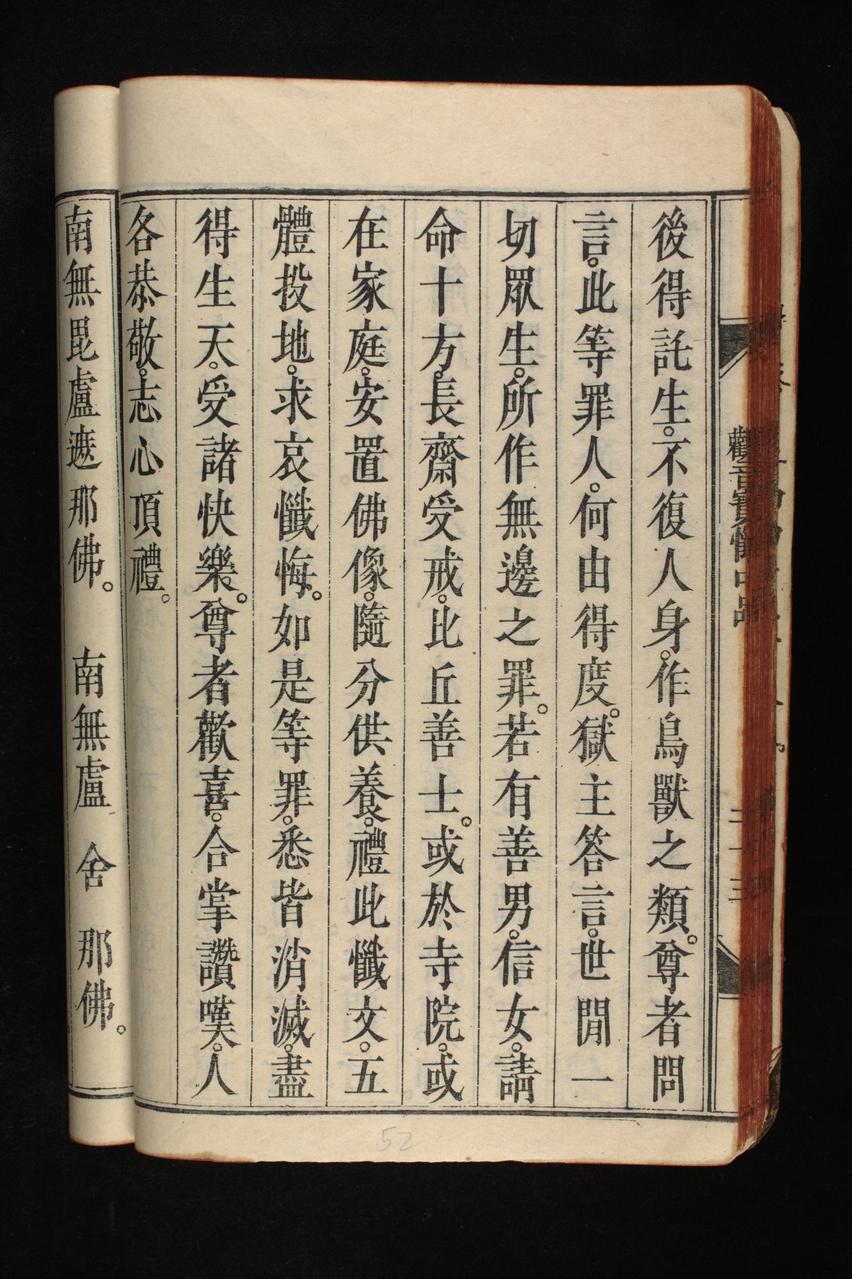 後得託生。不復人身。作鳥獸之類。尊者問
言。此等罪人。何由得度。獄主答言。世閒一
切眾生。所作無邊之罪。若有善男。信女。請
命十方。長齋受戒。比丘善士。或於寺院。或
在家庭。安置佛像。隨分供養。禮此懺文。五
體投地。求哀懺悔。如是等罪。悉皆消滅。盡
得生天。受諸快樂。尊者歡喜。合掌讚嘆。人
各恭敬。志心頂禮。
南無毘盧遮那佛。 南無盧舍那佛。
52